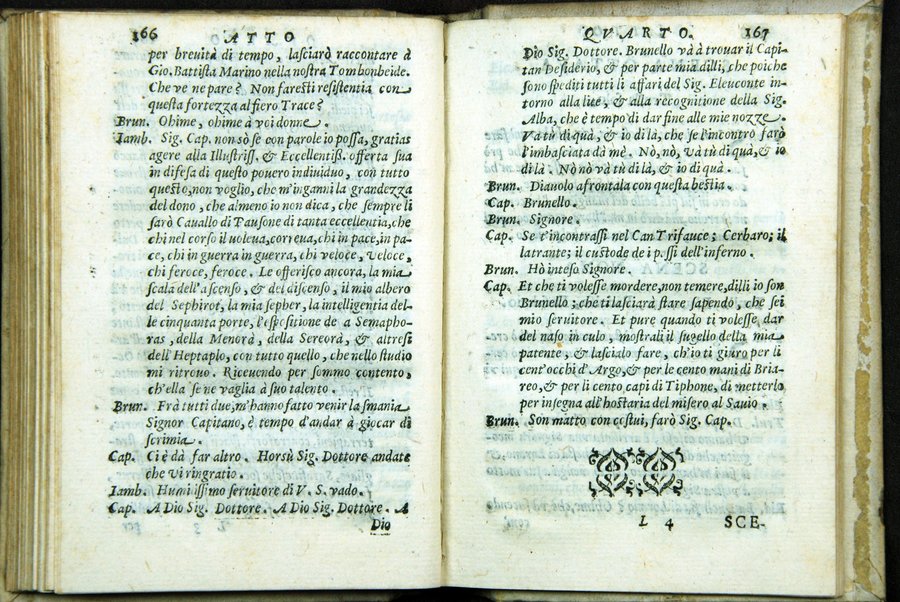 166 ATTO
per breuità di tempo, lasciarò raccontare à
Gio. Battista Marino nella nostra Tombonheide.
Che ve ne pare? Non faresti resistentia con
questa fortezza al fiero Trace?
Brun. Ohime, ohime à voi donne.
Iamb. Sig. Cap. non sò se con parole io possa, gratias
agere alla Illustriss. & Eccellentiss. offerta sua
in difesa di questo pouero indiuiduo, con tutto
questo, non voglio, che m'inganni la grandezza
del dono, che almeno io non dica, che sempre li
sarò Cauallo di Pausone di tanta eccellentia, che
chi nel corso il voleua, correua, chi in pace, in pa-
ce, chi in guerra in guerra, chi veloce, veloce,
chi feroce, feroce. Le offerisco ancora, la mia
scala dell'ascenso, & del discenso, il mio albero
del Sephirot, la mia sepher, la intelligentia del-
le cinquanta porte, l'espesitione de a Semapho-
ras, della Menorà, della Sereorà, & altresi
dell'Heptaplo, con tutto quello, che nello studio
mi ritrouo. Riceuendo per sommo contento,
ch'ella se ne vaglia à suo talento.
Brun. Frà tutti due, m'hanno fatto venir la smania
Signor Capitano, è tempo d'andar à giocar di
scrimia.
Cap. Ci è dà far altro. Horsù Sig. Dottore andate
che vi ringratio.
Iamb. Humilissimo seruitore di V. S. vado.
Cap. A Dio Sig. Dottore. A Dio Sig. Dottore. A
Dio
QVARTO. 167
Dio Sig. Dottore. Brunello và à trouar il Capi-
tan Desiderio, & per parte mia dilli, che poiche
sono spediti tutti li affari del Sig. Eleuconte in-
torno alla lite, & alla recognitione della Sig.
Alba, che è tempo di dar fine alle mie nozze.
Va tù di quà, & io di là, che se l'incontro farò
l'imbasciata dà me. Nò, nò, và tù di quà, & io
di là. Nò nò và tù di là, & io di quà.
Brun. Diauolo afrontala con questa bestia.
Cap. Brunello.
Brun. Signore.
Cap. Se t'incontrassi nel Can Trifauce; Cerbaro; il
latrante; il custode de i passi dell'inferno.
Brun. Hò inteso Signore.
Cap. Et che ti volesse mordere, non temere, dilli io son
Brunello: che ti lasciarà stare sapendo, che sei
mio seruitore. Et pure quando ti volesse, dar
del naso in culo, mostrali il sugello della mia
patente, & lascialo fare, ch'io ti giuro per li
cent'occhi d'Argo, & per le cento mani di Bria-
reo, & per li cento capi di Tiphone, di metterlo
per insegna all'hostaria del misero al Sauio.
Brun. Son matto con costui, farò Sig. Cap.
L 4 SCE-